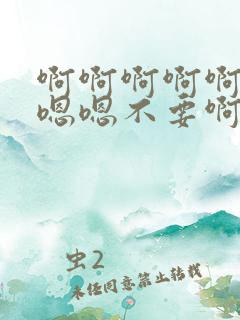 啊啊啊啊啊
嗯嗯不要啊
虫2
未经同意禁止转载